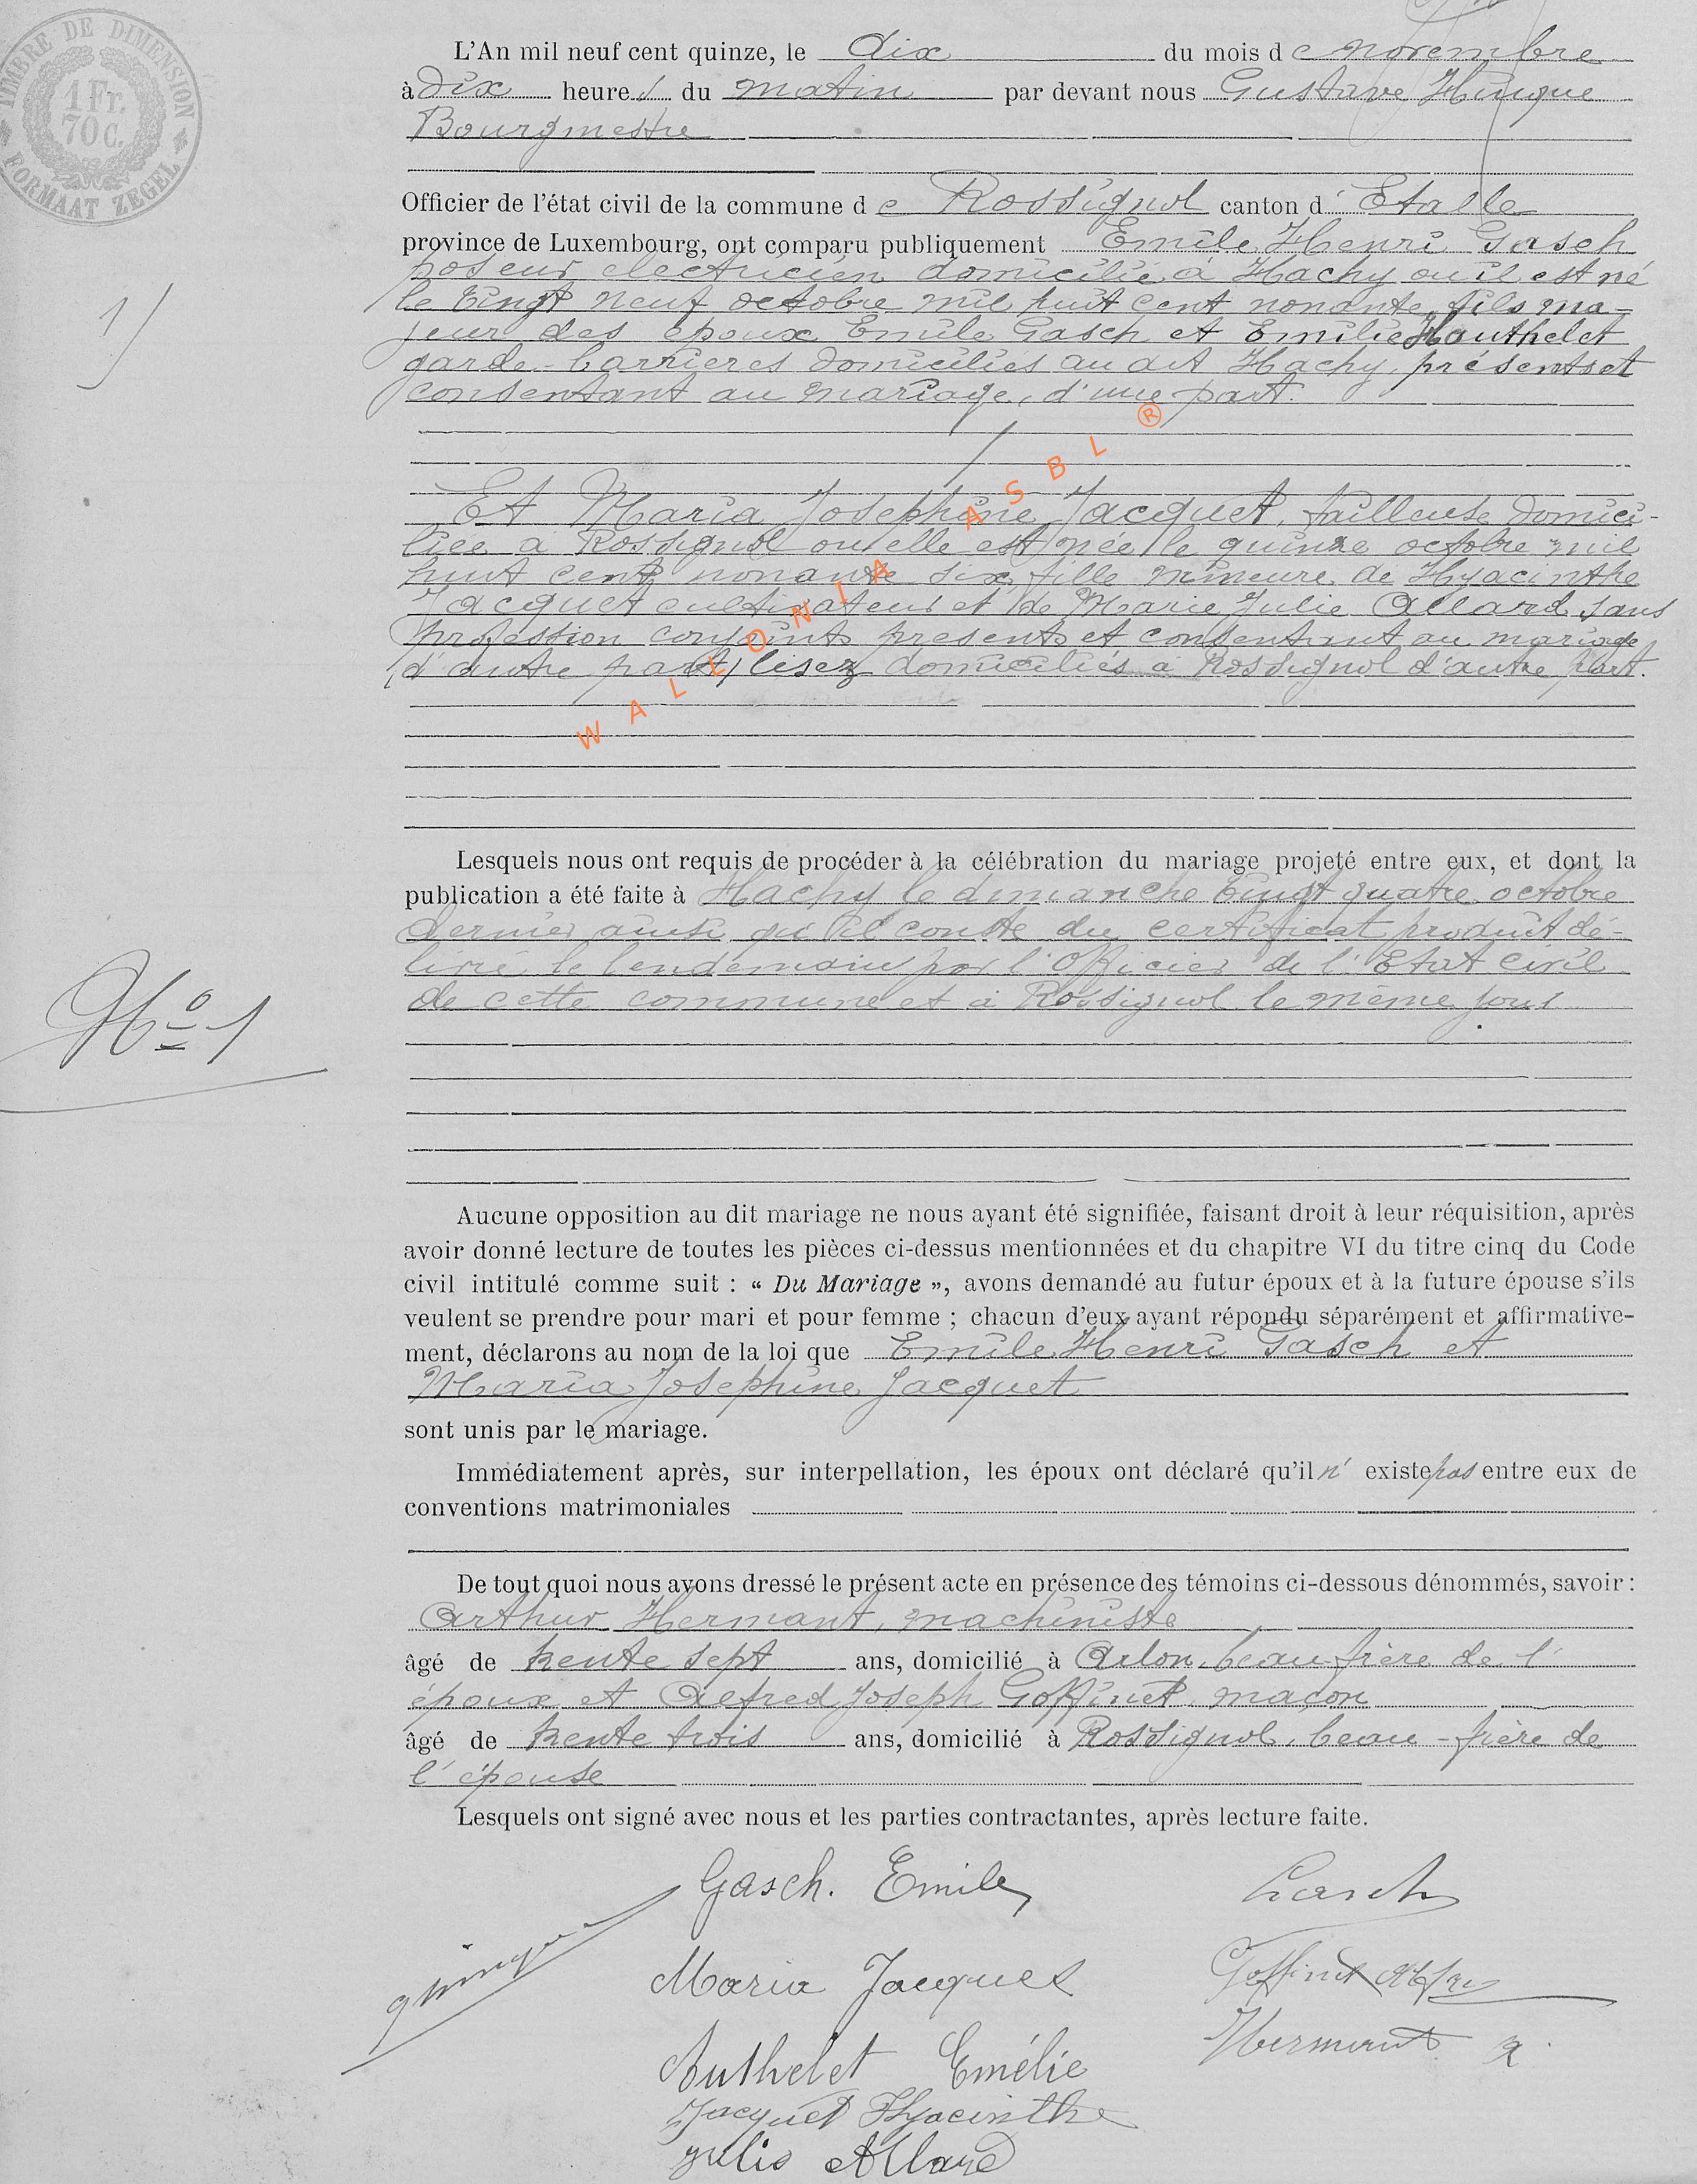 TIMBRE DE DIMENSION
1 Fr.
70 C.
FORMAAT ZEGEL
L'An mil neuf cent quinze, le dix du mois de novembre
à dix heures du matin par devant nous Gustave Hinque
Bourgmestre
Officier de l'état civil de la commune de Rossignol canton d'Etalle
province de Luxembourg, ont comparu publiquement Emile Henri Gasch
poseur electricien domicilié à Hachy où il est né
le vingt neuf octobre mil huit cent nonante, fils ma-
jeur des époux Emile Gasch et Emilie Hauthelet
garde-barrières domiciliés au dit Hachy, présents et
consentant au mariage, d'une part.
1)
Et Maria Josephine Jacquet, tailleuse domici-
liée à Rossignol où elle est née le quinze octobre mil
huit cent nonante six, fille mineure de Hyacinthe
Jacquet cultivateur et de Marie Julie Allard sans
profession conjoints présents et consentant au mariage
(d'autre part) lisez domiciliés à Rossignol d'autre part.
WALLONIA ASBL ®
Lesquels nous ont requis de procéder à la célébration du mariage projeté entre eux, et dont la
publication a été faite à Hachy le dimanche vingt quatre octobre
dernier ainsi qu'il conste du certificat produit dé-
livré le lendemain par l'Officier de l'Etat civil
de cette commune et à Rossignol le même jour
No 1
Aucune opposition au dit mariage ne nous ayant été signifiée, faisant droit à leur réquisition, après
avoir donné lecture de toutes les pièces ci-dessus mentionnées et du chapitre VI du titre cinq du Code
civil intitulé comme suit : « Du Mariage », avons demandé au futur époux et à la future épouse s'ils
veulent se prendre pour mari et pour femme ; chacun d'eux ayant répondu séparément et affirmative-
ment, déclarons au nom de la loi que Emile Henri Gasch et
Maria Josephine Jacquet
sont unis par le mariage.
Immédiatement après, sur interpellation, les époux ont déclaré qu'il n'existe pas entre eux de
conventions matrimoniales
De tout quoi nous avons dressé le présent acte en présence des témoins ci-dessous dénommés, savoir :
Arthur Hermant, machiniste
âgé de trente sept ans, domicilié à Arlon, beau-frère de l'
époux et Alfred Joseph Goffinet, maçon
âgé de trente trois ans, domicilié à Rossignol, beau-frère de
l'épouse
Lesquels ont signé avec nous et les parties contractantes, après lecture faite.
Gasch. Emile Gasch
Maria Jacques Goffinet
Hermant a
Authelet Emélie
Jacquet Hyacinthe
Julie Allard